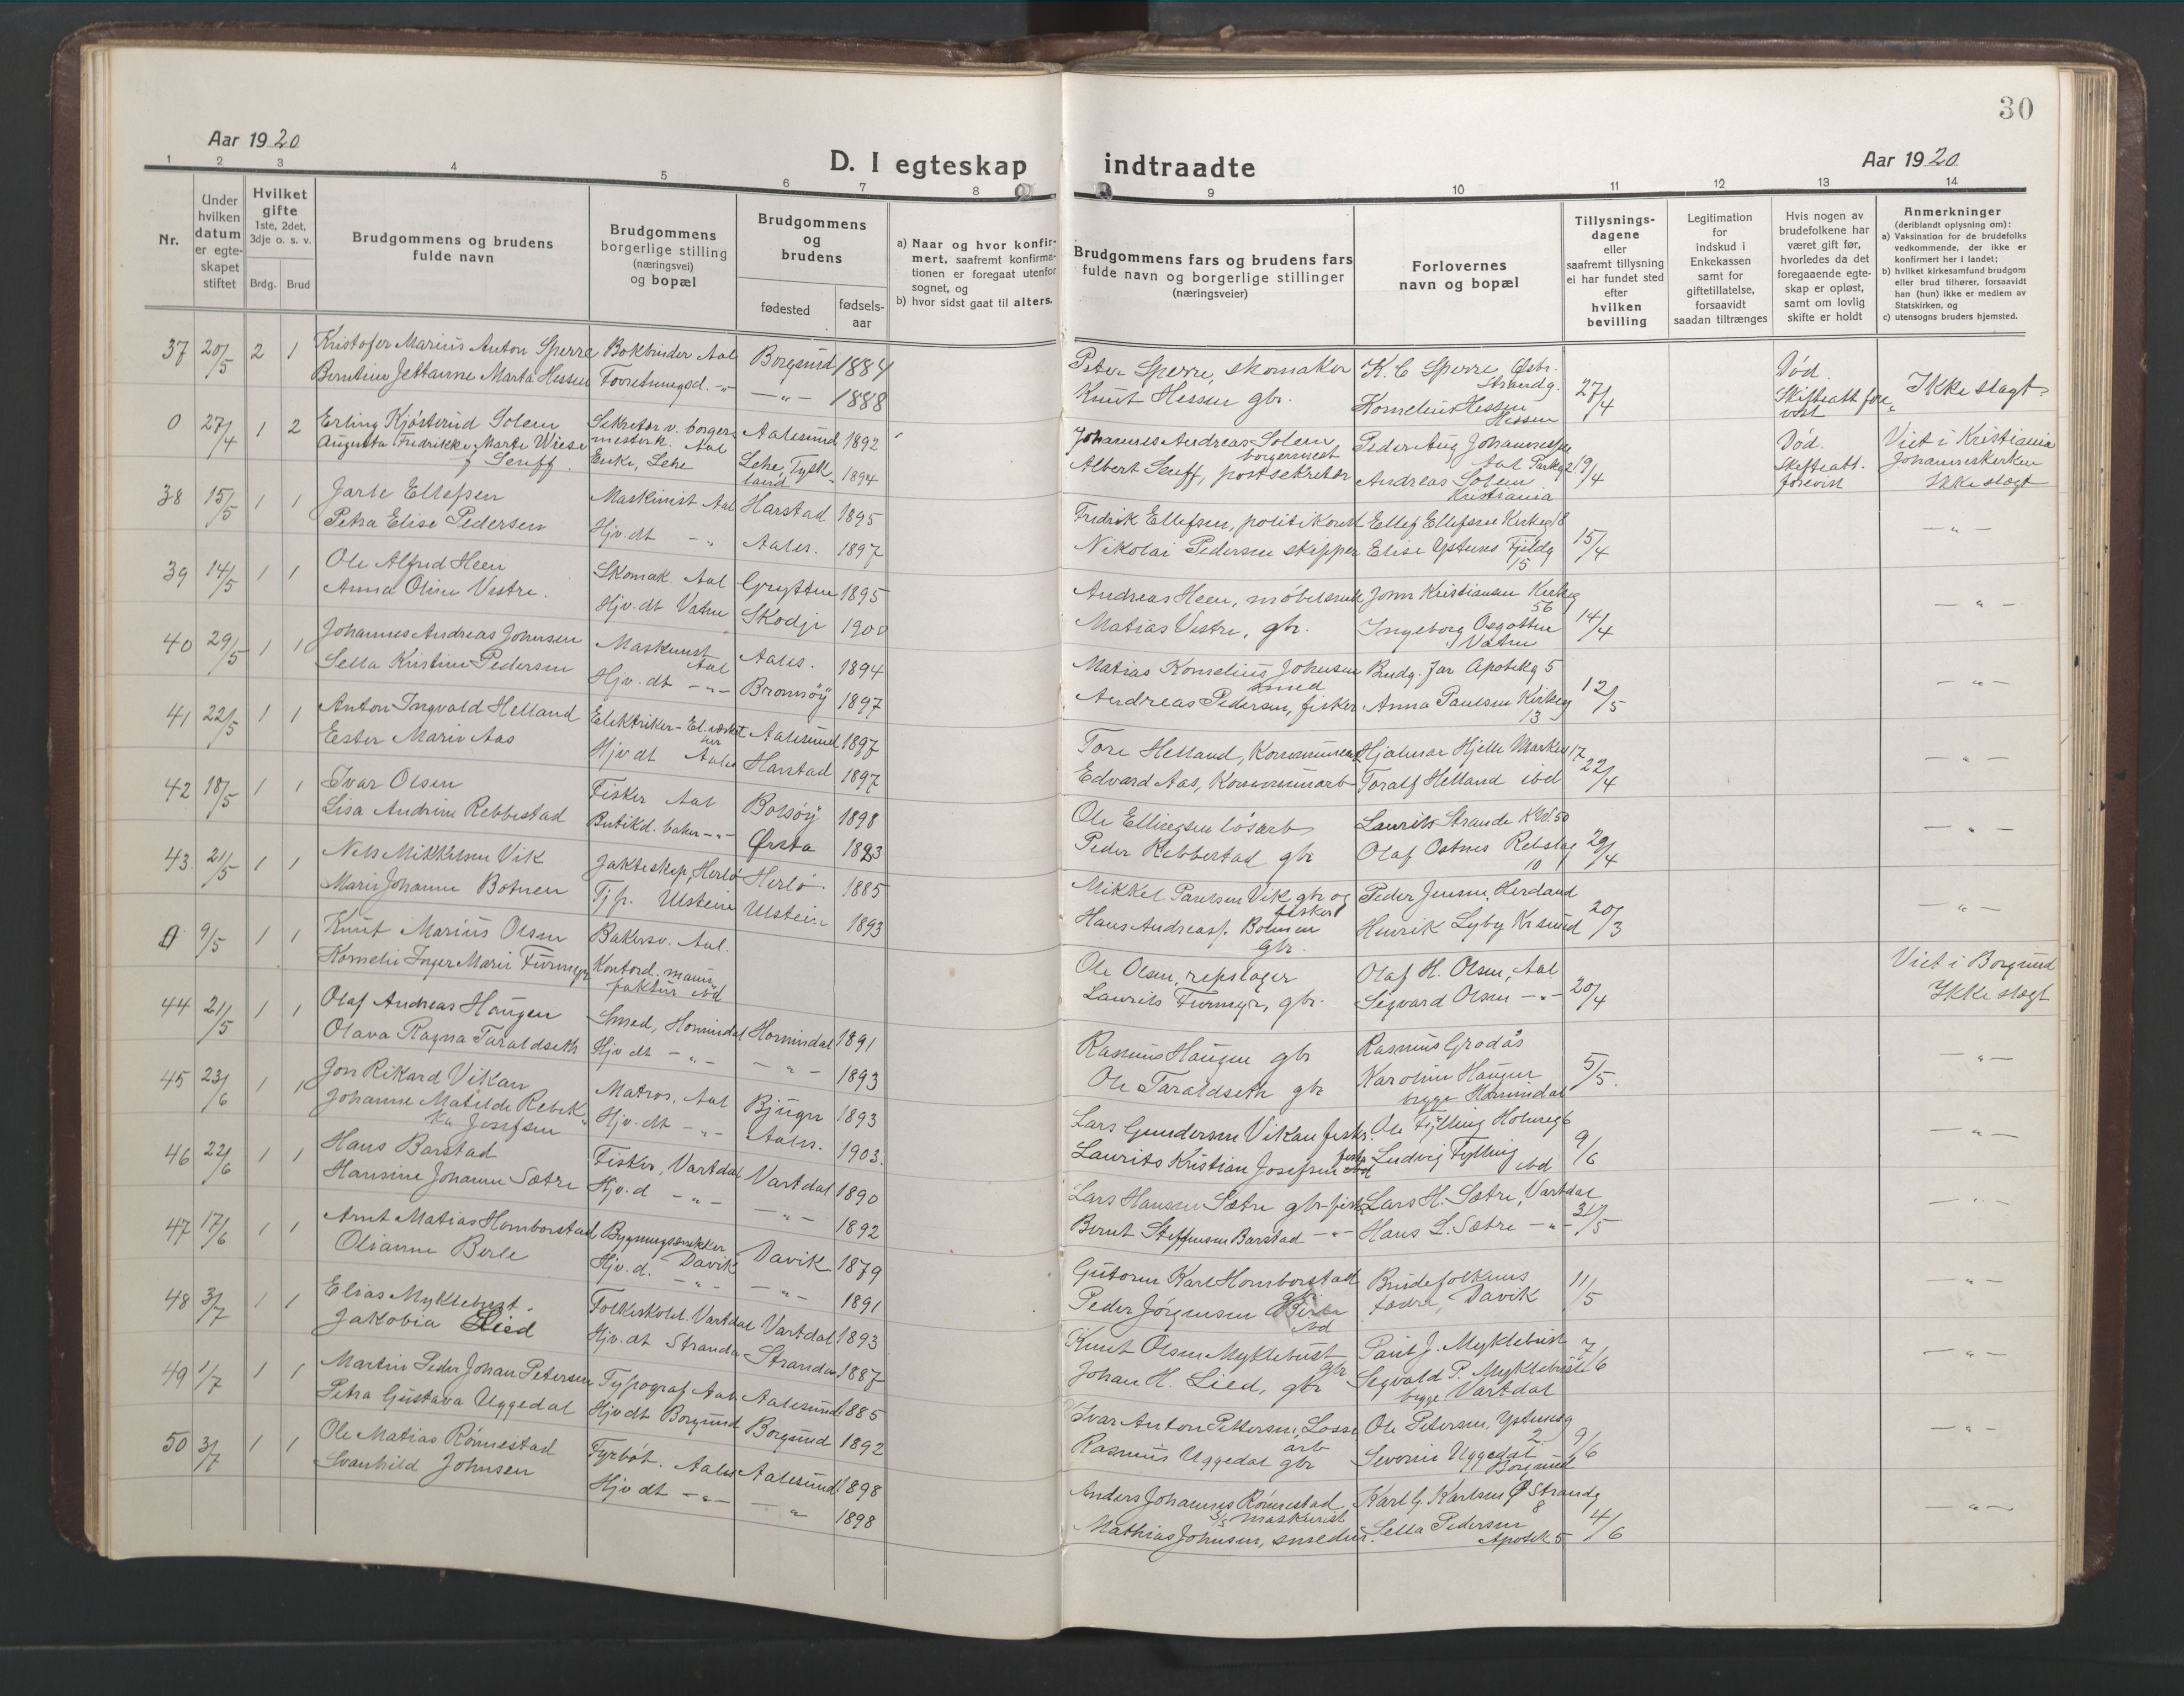 30
Aar 1920
D. I egteskap indtraadte
Aar 1920
1 2 3 4 5 6 7 8 9 10 11 12 13 14
Nr.
Under hvilken datum er egteskapet stiftet
Hvilket gifte 1ste, 2det, 3dje o. s. v.
Brdg. Brud
Brudgommens og brudens fulde navn
Brudgommens borgerlige stilling (næringsvei) og bopæl
Brudgommens og brudens
fødested
fødselsaar
a) Naar og hvor konfirmert, saafremt konfirmationen er foregaat utenfor sognet, og
b) hvor sidst gaat til alters.
Brudgommens fars og brudens fars fulde navn og borgerlige stillinger (næringsveier)
Forlovernes navn og bopæl
Tillysningsdagene eller saafremt tillysning ei har fundet sted efter hvilken bevilling
Legitimation for indskud i Enkekassen samt for giftetillatelse, forsaavidt saadan tiltrænges
Hvis nogen av brudefolkene har været gift før, hvorledes da det foregaaende egteskap er opløst, samt om lovlig skifte er holdt
Anmerkninger (deriblandt oplysning om):
a) Vaksination for de brudefolks vedkommende, der ikke er konfirmert her i landet;
b) hvilket kirkesamfund brudgom eller brud tilhører, forsaavidt han (hun) ikke er medlem av Statskirken, og
c) utensogns bruders hjemsted.
37 20/5 2 1 Kristofer Marius Anton Sperre Bokbinder Aal Borgund 1884 Peter Sperre, skomaker K. C Sperre, Østr. Strandg. 27/4 Død. Ikke slægt
Berntine Jettanne Marta Hessen Forretningsd. -"- -"- 1888 Knut Hessen gbr. Kornelius Hessen Hessen
0 27/4 1 2 Erling Kjøsterud Solem Sekretær v. borgermesterk. Aal Aalesund 1892 Johannes Andreas Solem borgermest Peder Aug Johannessen Aal Parkg 2 19/4 Død. Skifteatt. forevist Viet i Kristiania Johanneskirken Ikke slægt
Augusta Fredrikke Marte Wiese f Senff. Enke, Lehe Lehe, Tyskland 1894 Albert Senff, postsekretær Andreas Solem Kristiania
38 15/5 1 1 Jarle Ellefsen Maskinist Aal Harstad 1895 Fredrik Ellefsen, politikonst Ellef Ellefsen Kirkeg 18 15/4 -"-
Petra Elise Pedersen Hjv. dt -"- Aales. 1897 Nikolai Pedersen skipper Elise Ystenes Fjeldg 15
39 14/5 1 1 Ole Alfred Heen Skomak. Aal Grytten 1895 Andreas Heen, møbelsnek John Kristiansen Kirkeg 56 14/4 -"-
Anna Oline Vestre. Hjv. dt Vatne Skodje 1900 Matias Vestre, gbr. Ingeborg Osgotten Vatne
40 29/5 1 1 Johannes Andreas Johnsen Maskinist Aal Aales. 1894 Matias Kornelius Johnsen smed Brudg. far Apotekg 5 12/5 -"-
Sella Kristine Pedersen Hjv. dt -"- Bronnøy 1897 Andreas Pedersen, fisker Anna Paulsen Kirkeg 13
41 22/5 1 1 Anton Ingvald Helland Elektriker - El. verket her Aalesund 1897 Tore Helland, Kommunearb Hjalmar Hjelle Markeg 17 22/4 -"-
Ester Marie Aas Hjv dt Aales Harstad 1897 Edvard Aas, Kommunearb Toralf Helland ibd
42 18/5 1 1 Ivar Olsen Fisker Aal Bolsøy 1898 Ole Ellingsen løsarb Laurits Strande K.W. 50 29/4 -"-
Lisa Andrine Rebbestad Butikd. baker -"- Ørsta 1893 Peder Rebbestad gbr Olaf Ostnes Rebslag 10
43. 21/5 1 1 Nels Mikkelsen Vik Jakteskip, Herlø Herlø. 1885 Mikkel Paulsen Vik gbr og fisker Peder Jensen, Herdand 20/3 -"-
Marie Johanne Botnen Tj p. Ulstein Ulstein 1893 Hans Andreas P. Botnen Gbr. Henrik Lyby Kr sund
0 9/5 1 1 Knut Marius Olsen Bakersv. Aal. Ole Olsen, repslager Olaf H. Olsen, Aal 20/4 Viet i Borgund Ikke slægt
Kornelie Inger Marie Furmyr Kontord. manufaktur ibd Laurits Furmyr, gbr. Sigvard Olsen -"-
44 21/5 1 1 Olaf Andreas Haugen Smed, Hornindal Hornindal 1891 Rasmus Haugen gbr Rasmus Grodås 5/5. -"-
Olava Ragna Taraldseth Hjv dt -"- -"- 1893 Ole Taraldseth gbr Karoline Haugen begge Hornindal
45 23/6 1 1 Jon Rikard Vikan Matros, Aal Bjugn 1893 Lars Gundersen Vikan fisker. Ole Fylling Holmeg 6 9/6 -"-
Johanne Matilde Rebekka Josefsen Hjv. dt -"- Aales. 1903. Laurits Kristian Josefsen fisk ibd Ludvig Fylling ibd
46 22/6 1 1 Hans Barstad Fisker, Vartdal Vartdal 1890 Lars Hansen Sætre gbr-fisk Lars H. Sætre, Vartdal 31/5 -"-
Hansine Johanne Sætre Hjv. d -"- -"- 1892 Bernt Steffensen Barstad -"- Hans L. Sætre -"-
47 17/6 1 1 Arnt Matias Hornborstad Bygningssnekker Davik Davik 1879 Gutorm Karl Hornborstad gbr Brudefolkenes fædre, Davik 11/5 -"-
Olianne Berle Hjv. d. -"- -"- 1891 Peder Jørgensen Berle ibd
48 3/7 1 1 Elias Myklebust. Folkeskolel. Vartdal Vartdal 1893 Knut Olsen Myklebust gbr Paul J. Myklebust 7/6 -"-
Jakobia Lied Hjv. dt Stranda Stranda 1887 Johan H. Lied, gbr Sigvald P. Myklebust begge Vartdal
49 1/7 1 1 Martin Peder Johan Petersen Typograf Aal Aalesund 1885 Ivar Anton Pettersen, Lossearb Ole Petersen, Ystenesg 2. 9/6 -"-
Petra Gustava Uggedal Hjv dt Borgund Borgund 1892 Rasmus Uggedal gbr Severin Uggedal Borgund
50 3/7 1 1 Ole Matias Rønnestad Fyrbøt. Aales Aalesund 1898 Anders Johannes Rønnestad maskinist Karl G. Karlsen Ø Strandg 8 4/6 -"-
Svanhild Johnsen Hjv dt -"- -"- 1898 Mathias Johnsen, smedm. Sella Pedersen Apotek 5